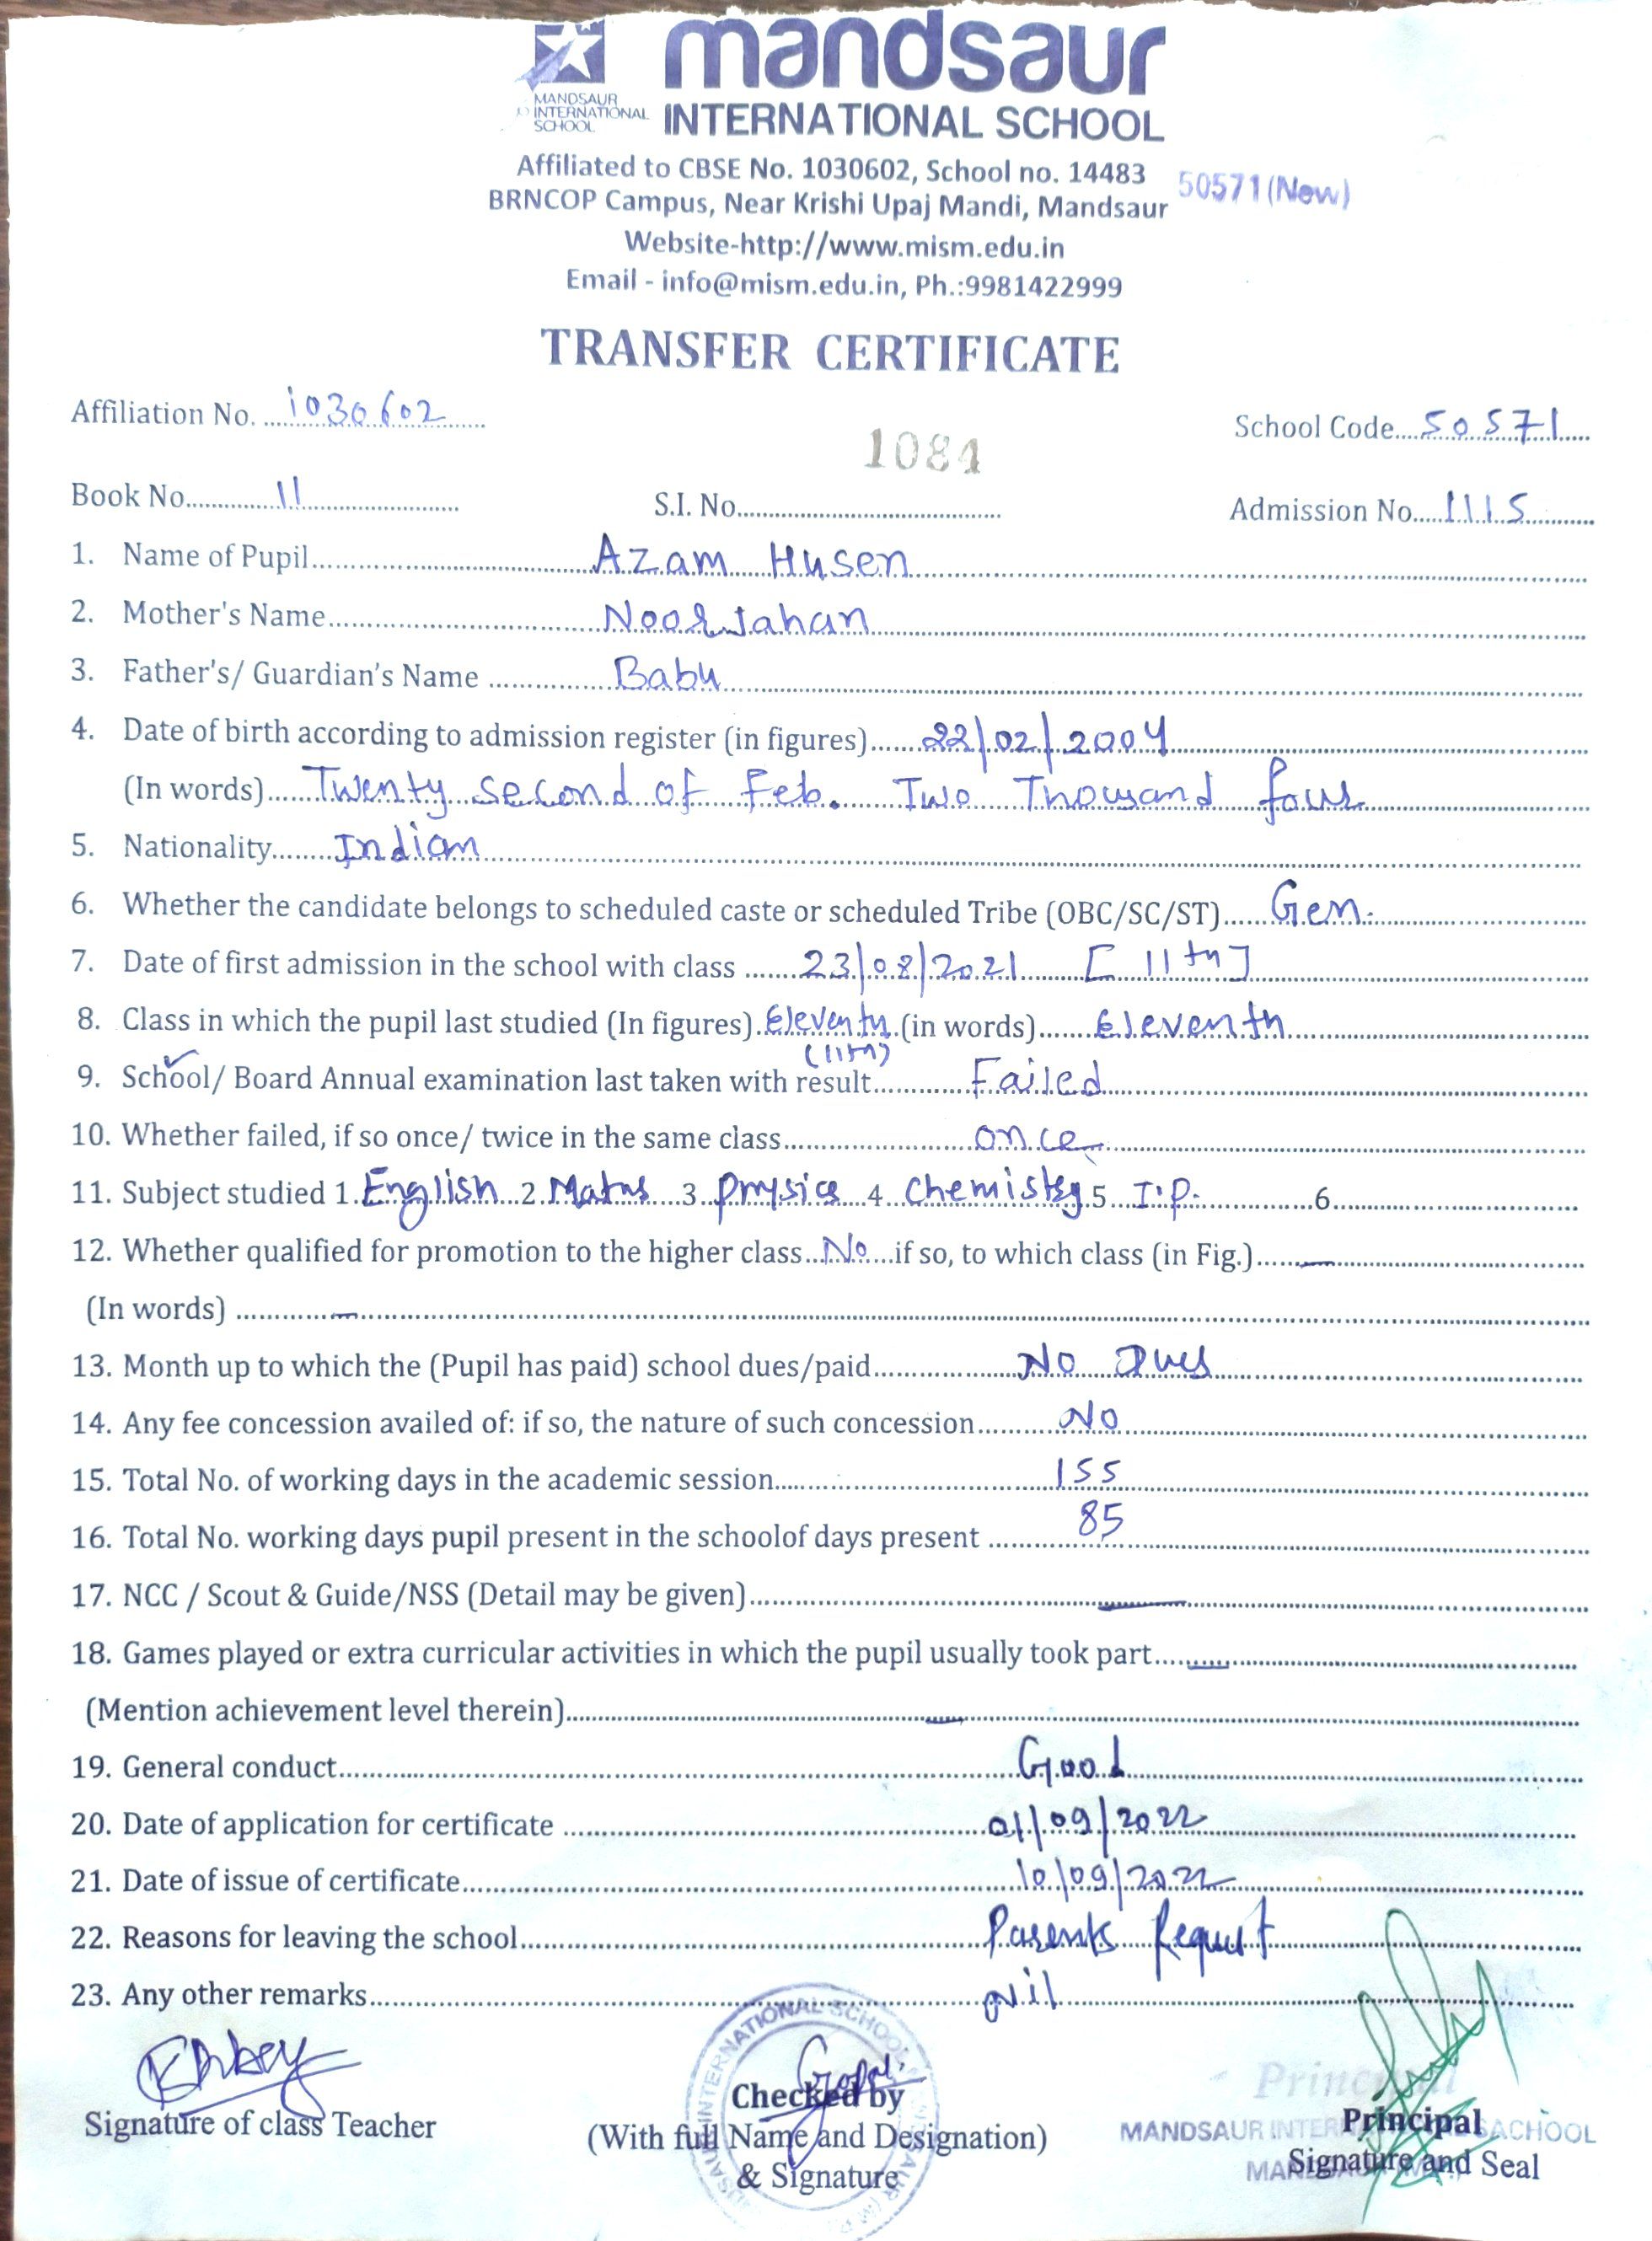 mandsaur
MANDSAUR
INTERNATIONAL
SCHOOL
INTERNATIONAL SCHOOL
Affiliated to CBSE No. 1030602, School no. 14483 50571(New)
BRNCOP Campus, Near Krishi Upaj Mandi, Mandsaur
Website-http://www.mism.edu.in
Email - info@mism.edu.in, Ph.:9981422999
TRANSFER CERTIFICATE
Affiliation No. 1030602 School Code 50571
1084
Book No. 11 S.I. No. Admission No. 1115
1. Name of Pupil Azam Husen
2. Mother's Name Noor Jahan
3. Father's/ Guardian's Name Babu
4. Date of birth according to admission register (in figures) 22/02/2004
(In words) Twenty second of Feb. Two Thousand four
5. Nationality Indian
6. Whether the candidate belongs to scheduled caste or scheduled Tribe (OBC/SC/ST) Gen.
7. Date of first admission in the school with class 23/08/2021 [11th]
8. Class in which the pupil last studied (In figures) Eleventh (in words) Eleventh
(11th)
9. School/ Board Annual examination last taken with result Failed
10. Whether failed, if so once/ twice in the same class once
11. Subject studied 1. English 2 Maths 3 Physics 4 Chemistry 5 I.P. 6
12. Whether qualified for promotion to the higher class No if so, to which class (in Fig.) —
(In words) —
13. Month up to which the (Pupil has paid) school dues/paid No Dues
14. Any fee concession availed of: if so, the nature of such concession No
15. Total No. of working days in the academic session 155
16. Total No. working days pupil present in the schoolof days present 85
17. NCC / Scout & Guide/NSS (Detail may be given) —
18. Games played or extra curricular activities in which the pupil usually took part —
(Mention achievement level therein) —
19. General conduct Good
20. Date of application for certificate 01/09/2022
21. Date of issue of certificate 10/09/2022
22. Reasons for leaving the school Parents Request
23. Any other remarks Nil
INTERNATIONAL SCHOOL
Signature of class Teacher
Checked by
(With full Name and Designation)
& Signature
Principal
MANDSAUR INTERNATIONAL SACHOOL
Principal
Signature and Seal